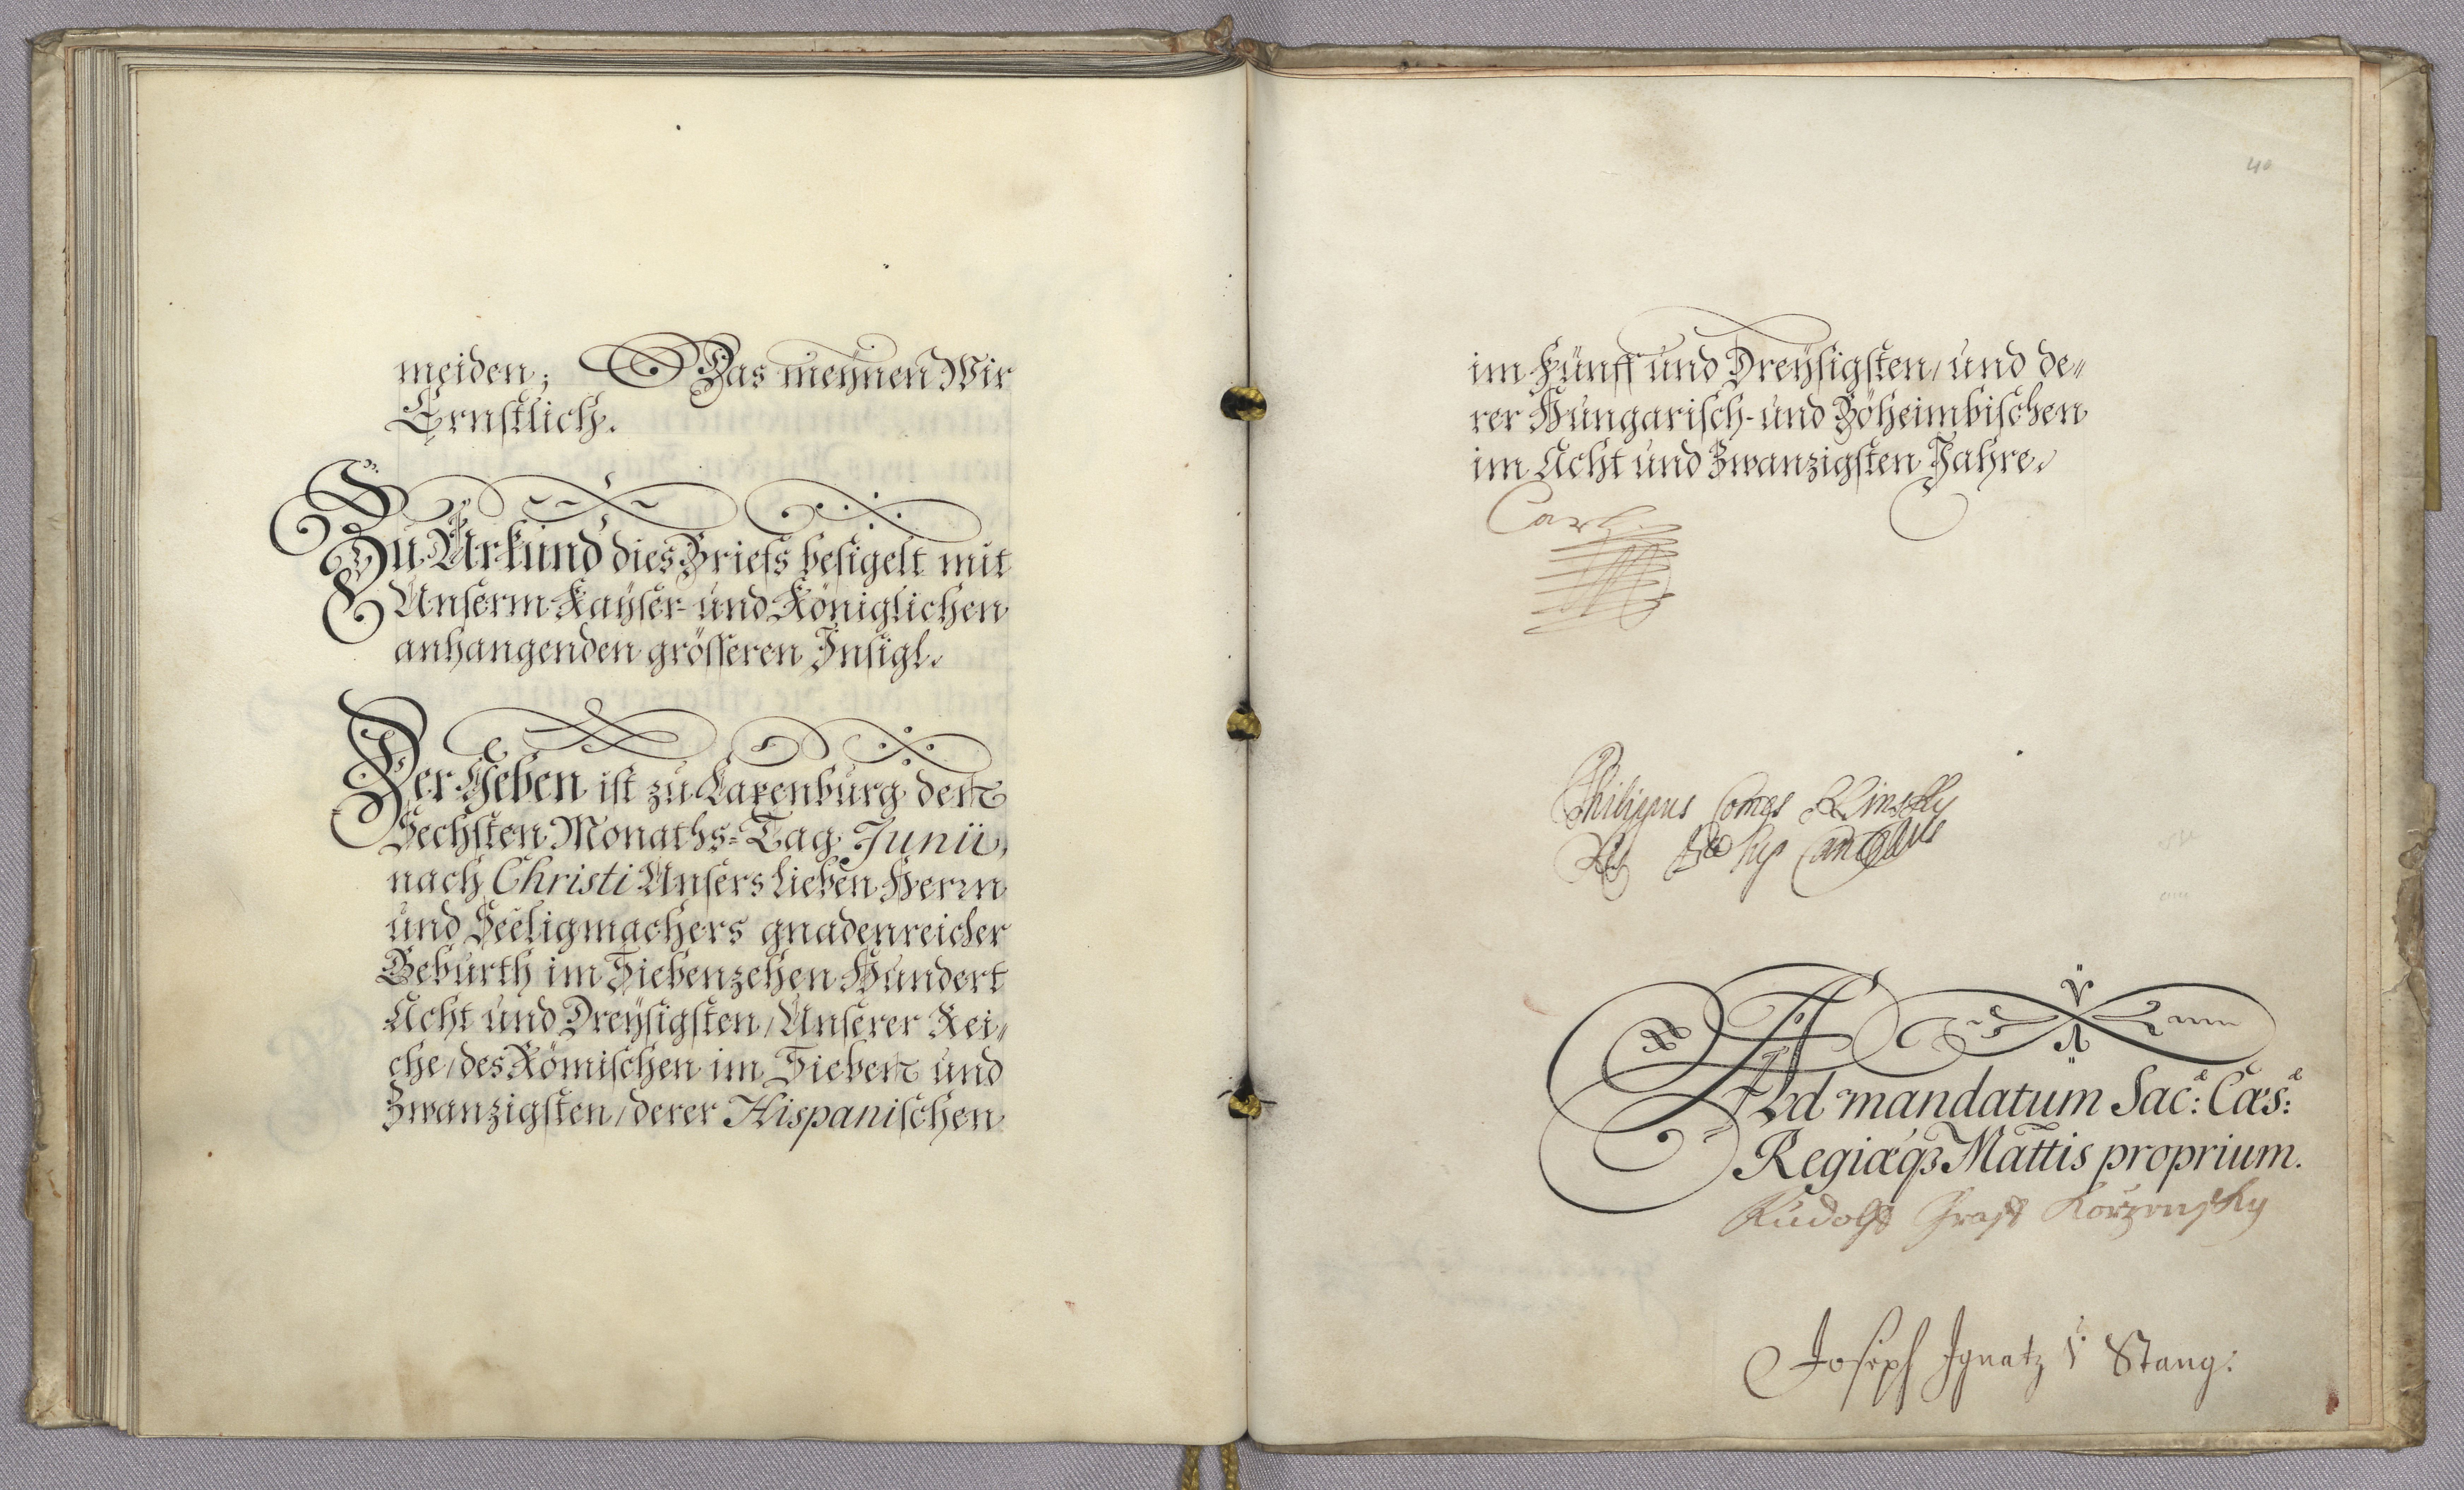 meiden; Das meÿnen Wir
Ernstlich.
Zu Urkund dies Briefs besigelt mit
Unserm Kaÿser- und Königlichen
anhangenden grösseren Insigl.
Der Geben ist zu Laxenburg den
Sechsten Monaths-Tag Junii,
nach Christi Unsers Lieben Herrn
und Seeligmachers gnadenreicher
Geburth im Siebenzehen Hundert
Acht und Dreÿsigsten, Unserer Rei-
che, des Römischen im Sieben und
Zwanzigsten, derer Hispanischen
40
im Fünff und Dreÿsigsten, und de-
rer Hungarisch- und Böheimbischen
im Acht und Zwanzigsten Jahre.
Carl
Philippus Comes Kinsky
Rs Bæ Sup Cancellarius
Ad mandatum Sac: Cæs:
Regiæq3 Mattis proprium.
Rudolff Graff Korzensky
Joseph Ignatz v Stang: